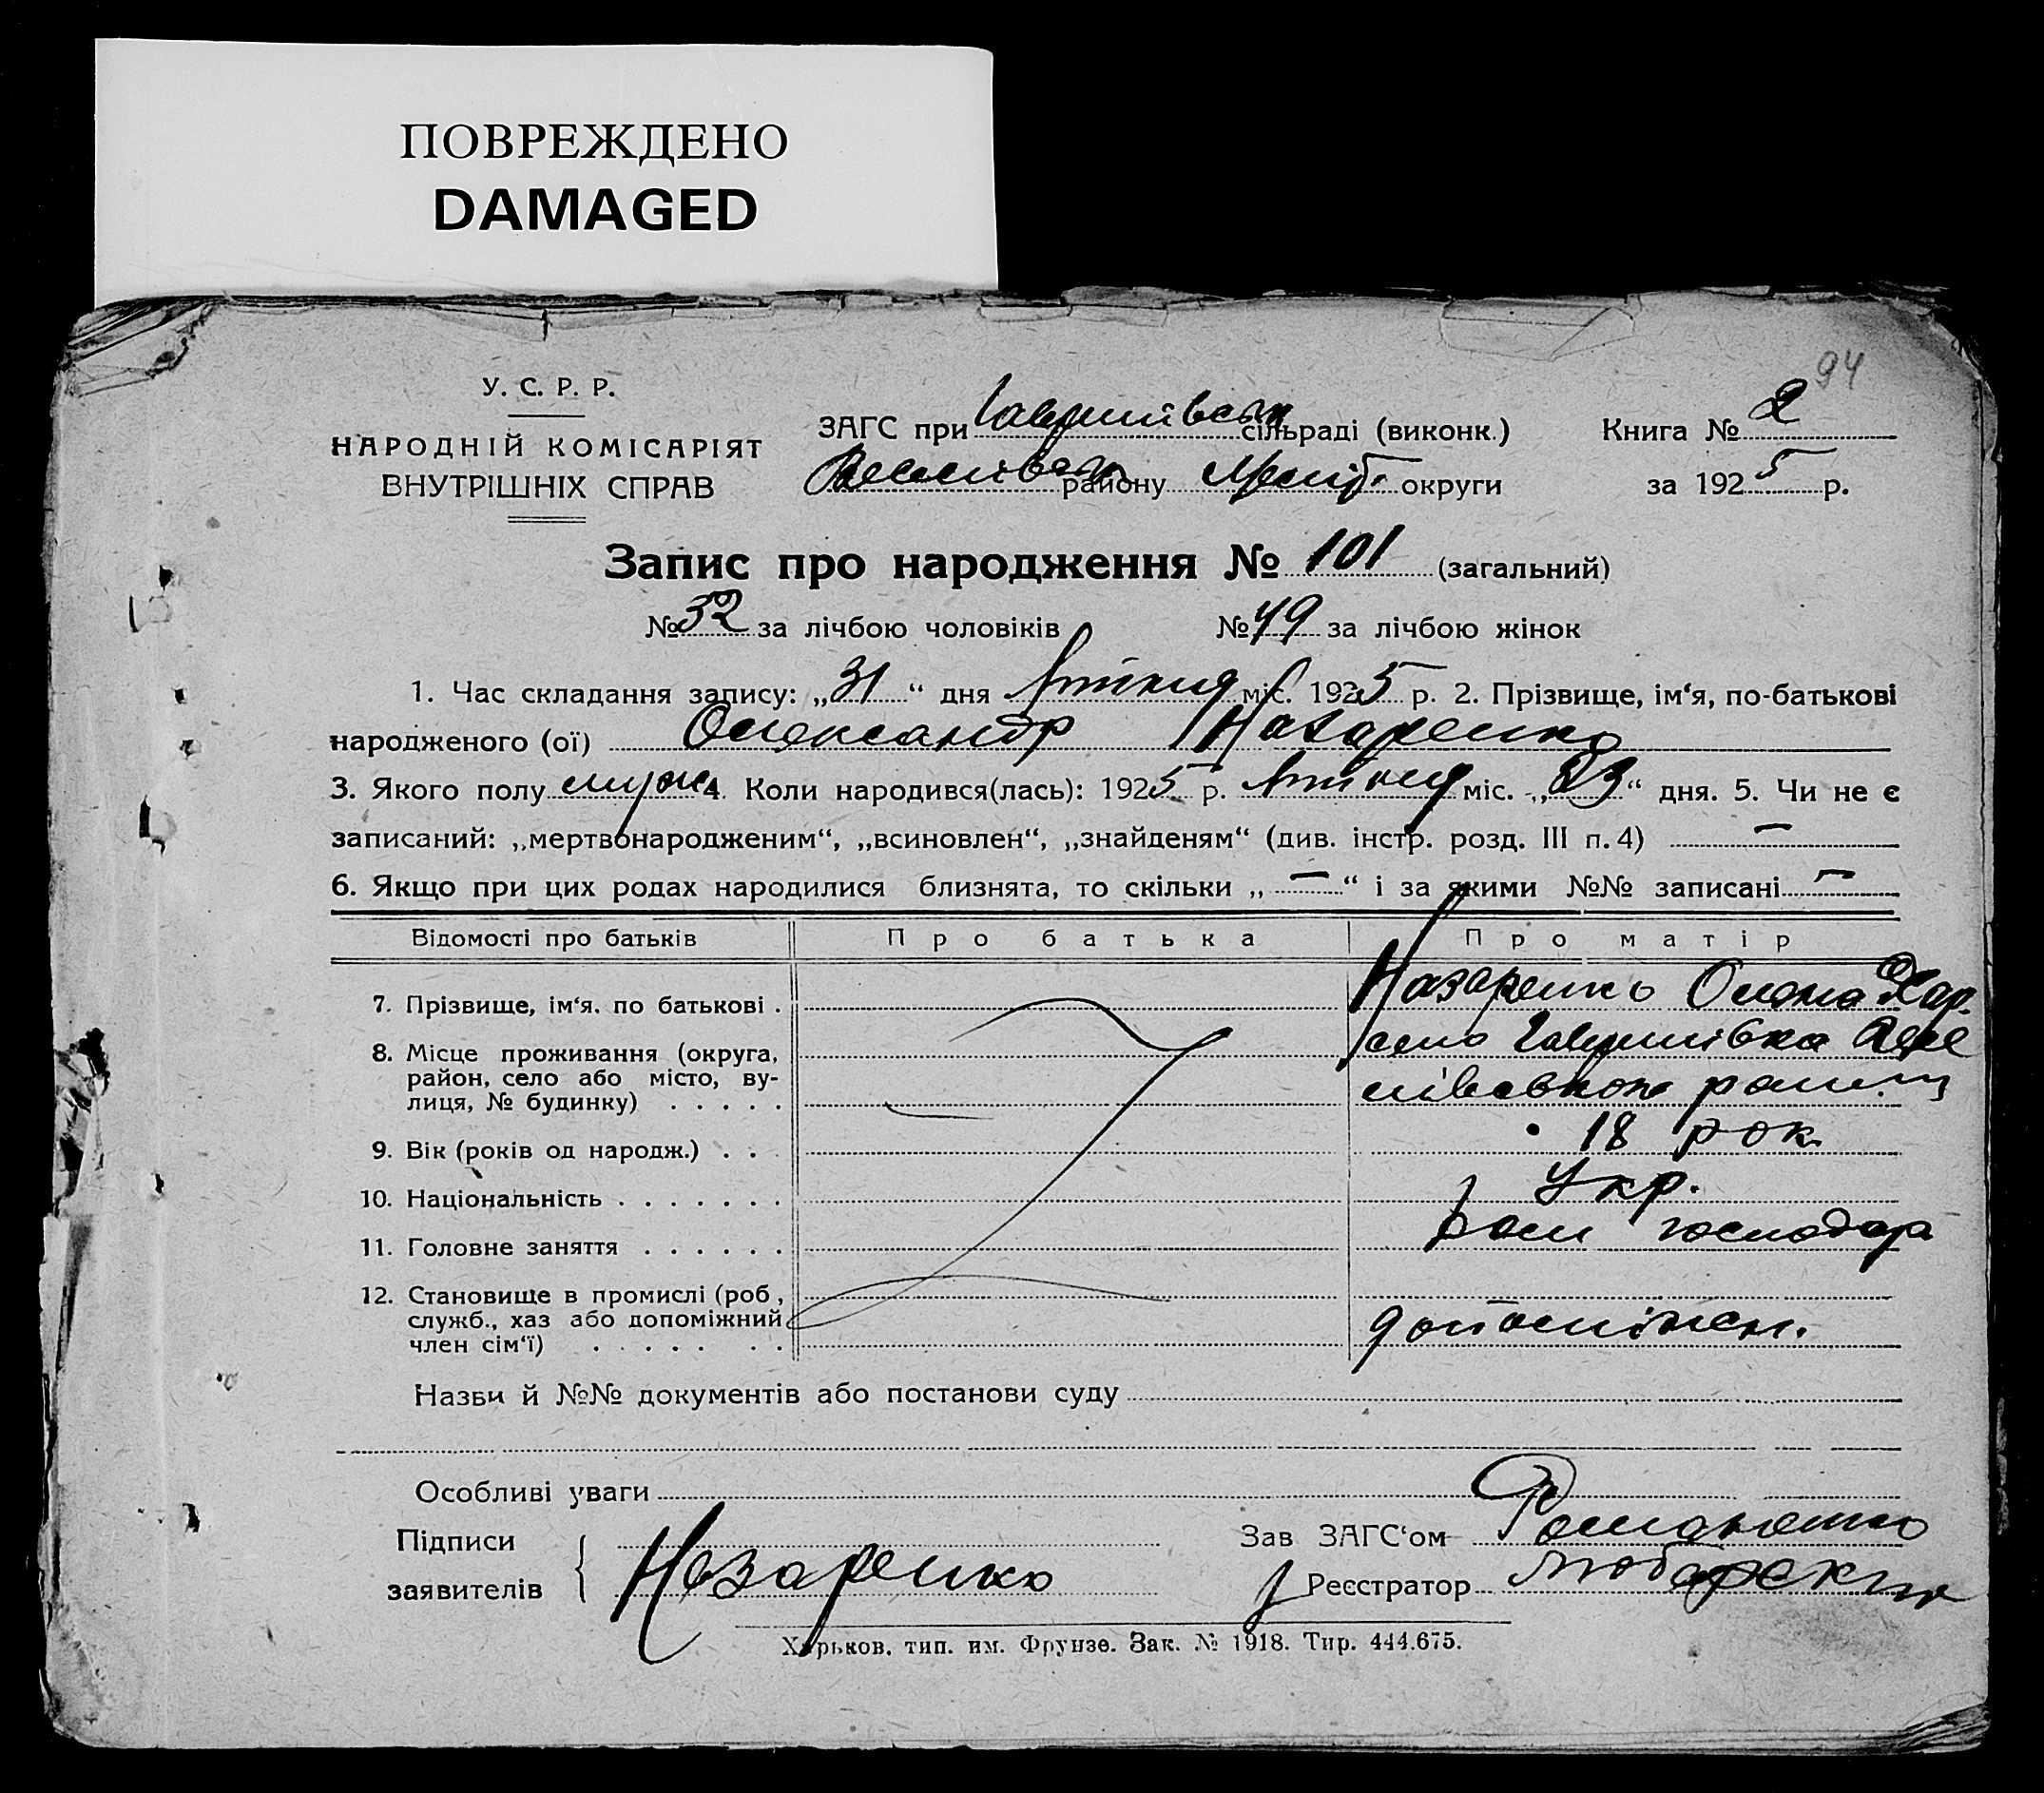 ПОВРЕЖДЕНО
DAMAGED
94
У. С. Р. Р.
НАРОДНІЙ КОМІСАРІЯТ
ВНУТРІШНІХ СПРАВ
ЗАГС при Гаврилівськ сільраді (виконк.)
району Меліт. округи
Книга № 2
за 1925 р.
Запис про народження № 101 (загальний)
№ 52 за лічбою чоловіків № 49 за лічбою жінок
1. Час складання запису: „31“ дня Липня міс. 1925 р. 2. Прізвище, ім‘я, по-батькові
народженого (ої) Олександр Назаренко
3. Якого полу муж. 4. Коли народився(лась): 1925 р. Липня міс. „23“ дня. 5. Чи не є
записаний: „мертвонародженим“, „всиновлен“, „знайденям“ (див. інстр. розд. III п. 4) —
6. Якщо при цих родах народилися близнята, то скільки „ — “ і за якими №№ записані —
Відомості про батьків Про батька Про матір
7. Прізвище, ім‘я. по батькові . Назаренко Олена Хар.
8. Місце проживання (округа, село Гаврилівка
район, село або місто, ву-
лиця, № будинку) . . . . .
9. Вік (років од народж.) . . . 18 рок.
10. Національність . . . . . . . Укр.
11. Головне заняття . . . . . . господар
12. Становище в промислі (роб,
служб., хаз або допоміжний
член сім‘ї) . . . . . . . допоміжн.
Назви й №№ документів або постанови суду
Особливі уваги
Підписи
заявителів Назаренко
Зав ЗАГС‘ом
Реєстратор
Харьков, тип. им. Фрунзе. Зак. № 1918. Тир. 444.675.